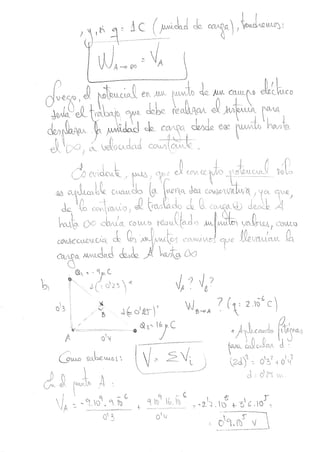 , y, si q = 1C (unidad de carga), tendremos:
W A→∞ = V A
Luego, el potencial en un punto de un campo eléctrico
sería el trabajo que debe realizar el sistema para
desplazar la unidad de carga desde ese punto hasta
el ∞, a velocidad constante.
Es evidente, pues, que el concepto potencial sólo
es aplicable cuando la fuerza sea conservativa, ya que,
de lo contrario, el traslado de la carga desde A
hasta ∞ daría como resultado infinitos valores, como
consecuencia de los infinitos caminos que llevarían la
carga unidad desde A hasta ∞
b) Q₁ = -9 μC
V A? V B?
W B→A? (q = 2·10⁻⁶ C)
0'3
B
Q₂ = 16 μC
A 0'4
* Aplicando Pitágoras
para calcular d:
(2d)² = 0'3² + 0'4²
d = 0'25 m
Como sabemos: V = ΣVi
En el punto A:
V A = -9·10⁹·9·10⁻⁶ / 0'3 + 9·10⁹·16·10⁻⁶ / 0'4 = -2'7·10⁵ + 3'6·10⁵ =
= 0'9·10⁵ V